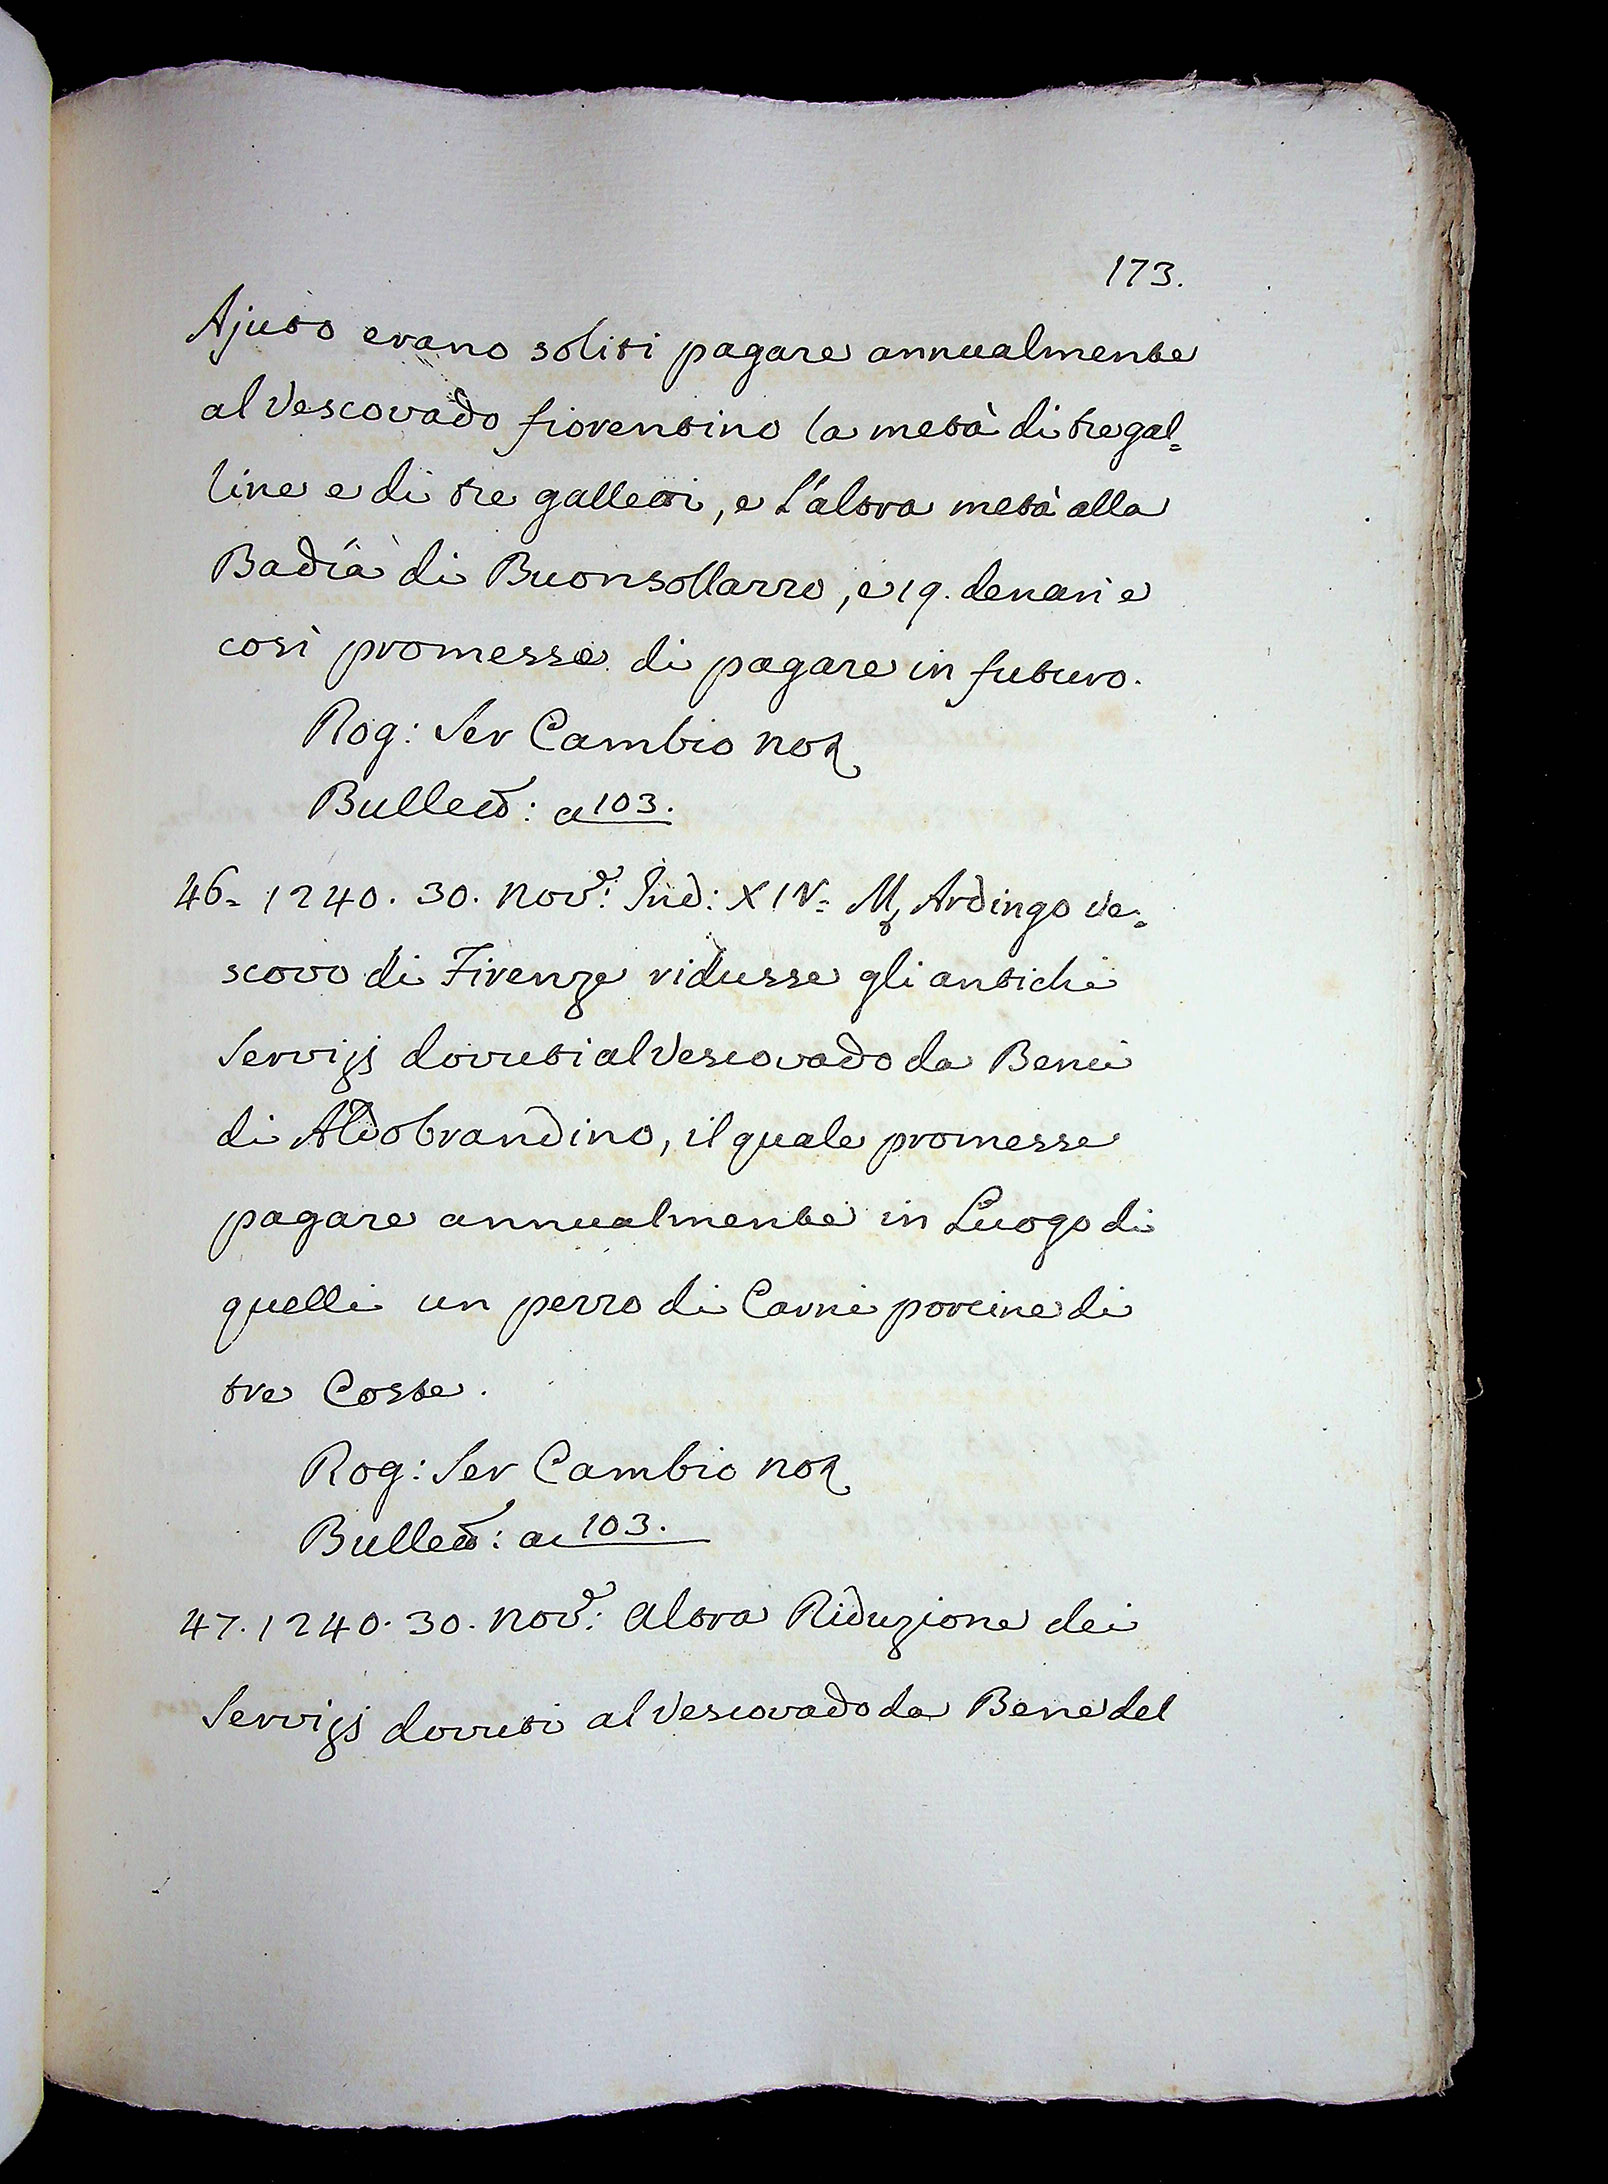 173.
Ajuto erano soliti pagare annualmente
al Vescovado fiorentino la metà di tre gal=
line e di tre galletti, e L'altra metà alla
Badía di Buonsollazzo, e 19. denari e
così promesse di pagare in futuro.
Rog: Ser Cambio not
Bullett: a 103.
46= 1240. 30. Nov.e: Ind: XIV= M, Ardingo Ve=
scovo di Firenze ridusse gli antichi
Servigj dovuti al Vescovado da Benci
di Aldobrandino, il quale promesse
pagare annualmente in Luogo di
quelli un pezzo di Carni porcine di
tre Coste.
Rog: Ser Cambio not
Bullett: a 103.
47. 1240. 30. Nov.e: altra Riduzione dei
Servigj dovuti al Vescovado da Bene del